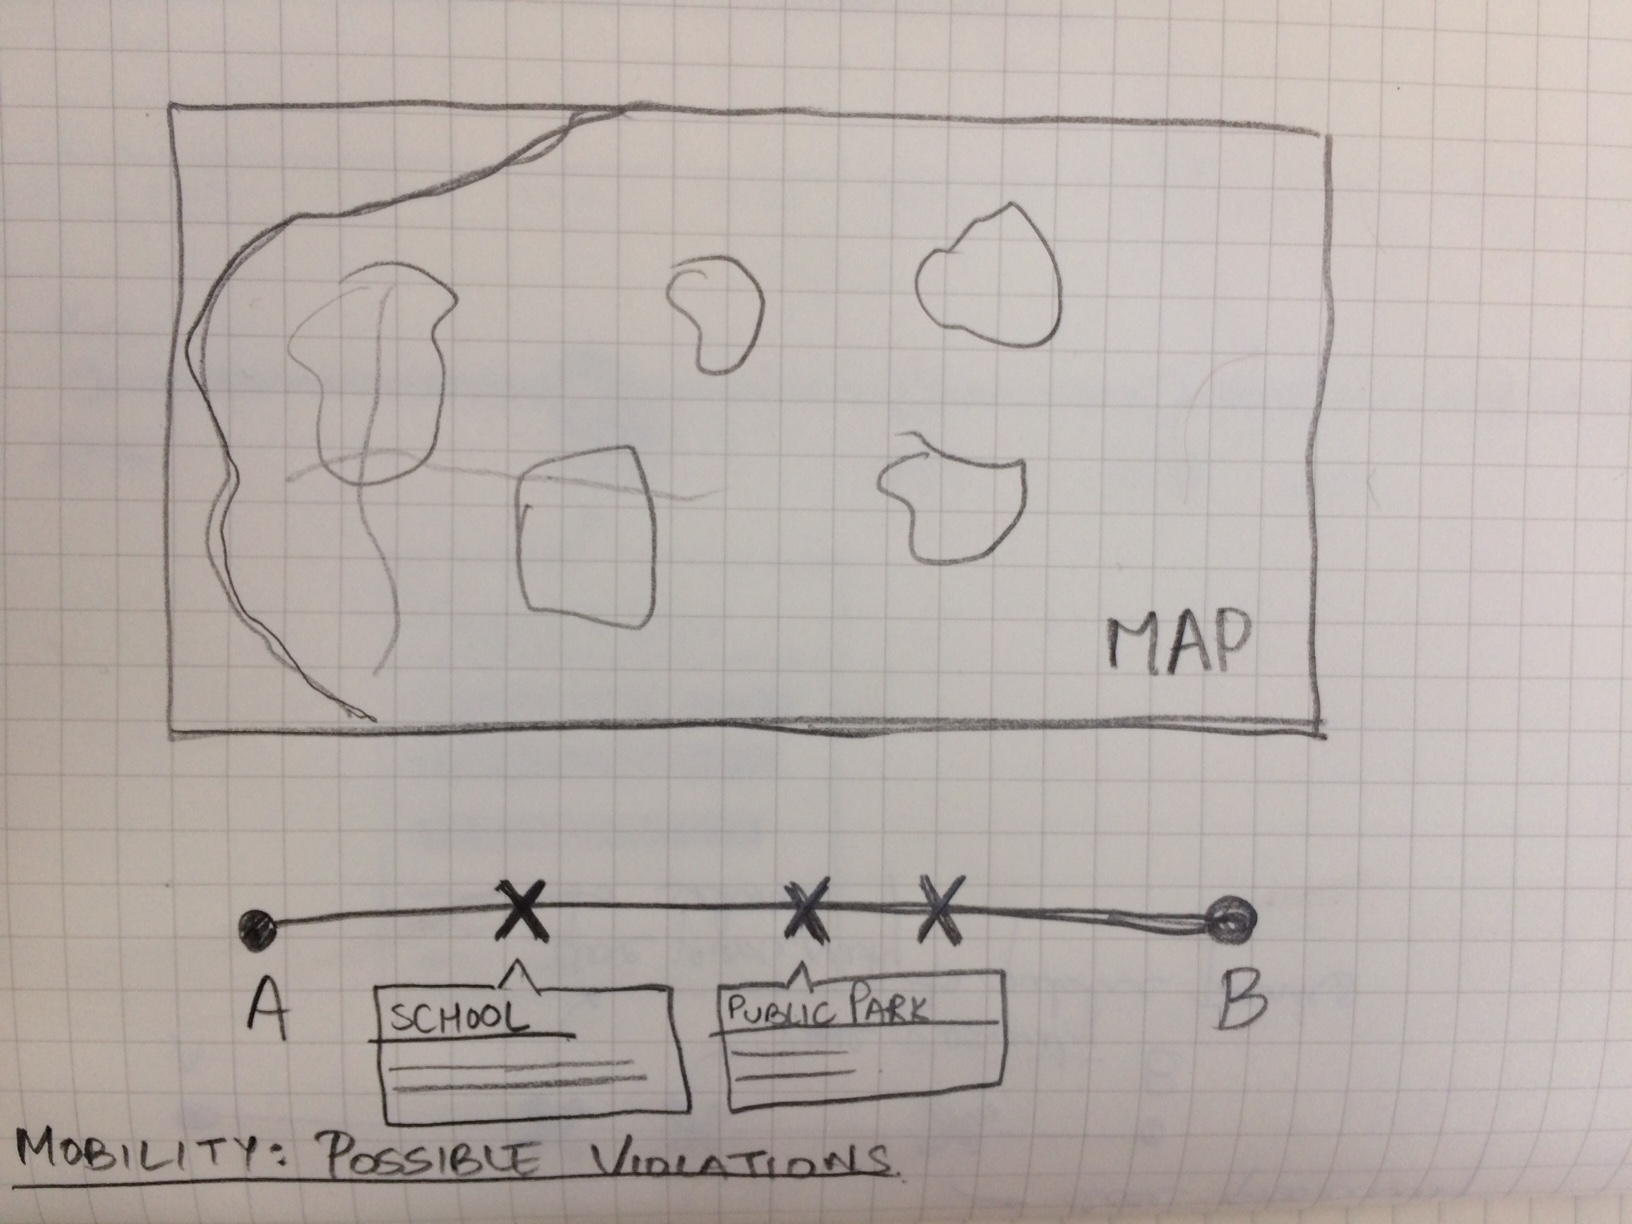 MAP
A
B
SCHOOL
PUBLIC PARK
MOBILITY: POSSIBLE VIOLATIONS.